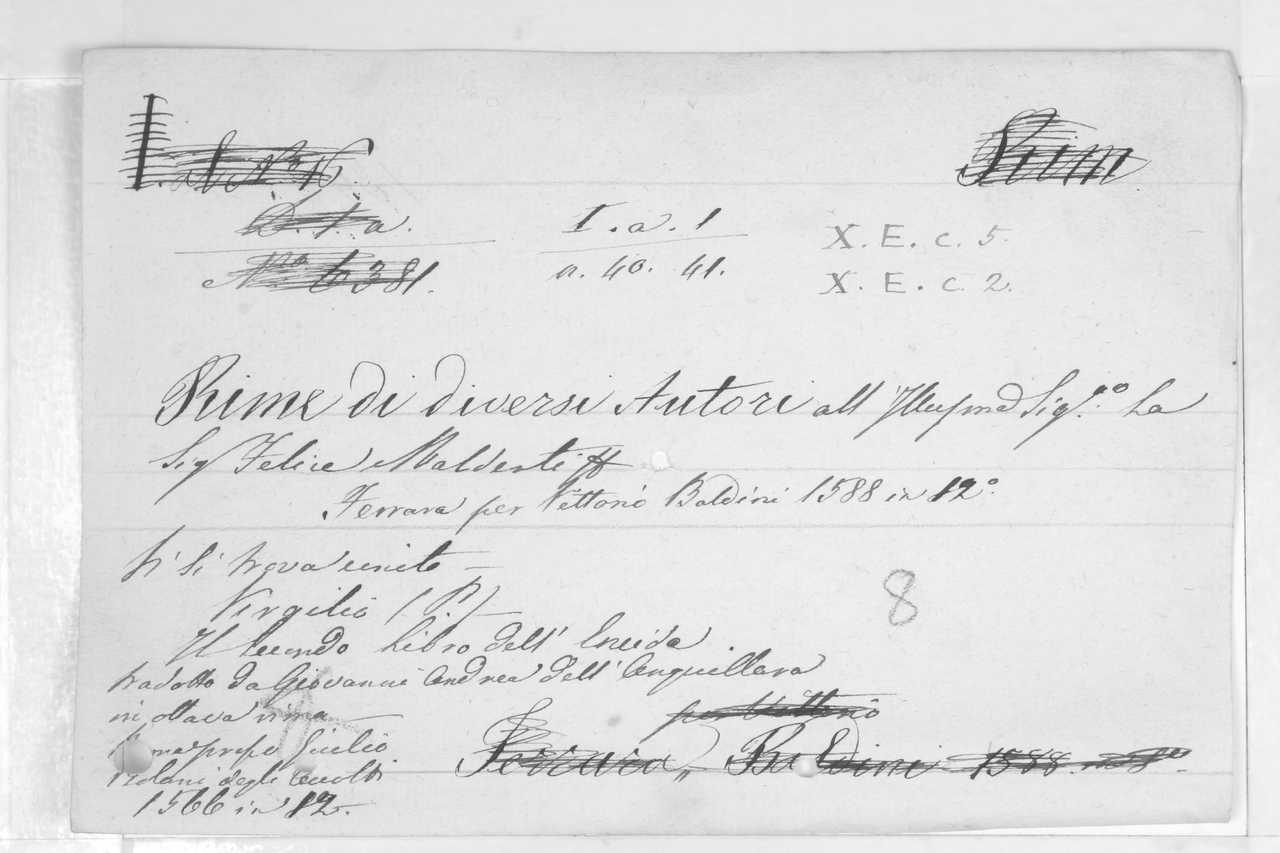 Rim
D. 1. a.
I. a. 1
X. E. c. 5.
Nro 6381.
a. 40. 41.
X. E. c. 2.
Rime di diversi Autori all' Sig.ra La
Sig Felice
Ferrara per Vittorio Baldini 1588 in 12°
Vi si trova unito —
8
Virgilio (P.)
Il secondo Libro dell' Eneida
tradotto da Giovanni Andrea dell' Anguillara
in ottava rima
per Vittorio
Roma presso Giulio
Ferrara, Baldini 1588 in 8°
Bolani degli Accolti
1566 in 12.